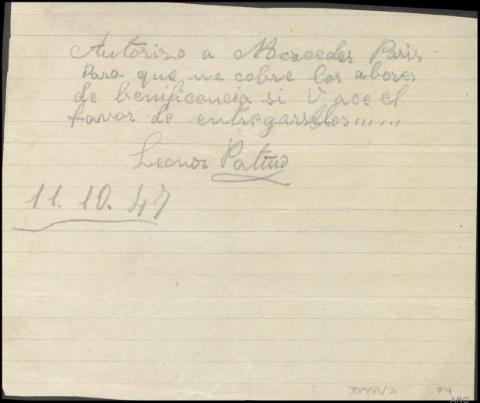 Autoriso a Mercedes Paris
Para que me cobre los abores
de benificencia si V ace el
favor de entregarselos......
Leonor Patiño
11. 10. 47